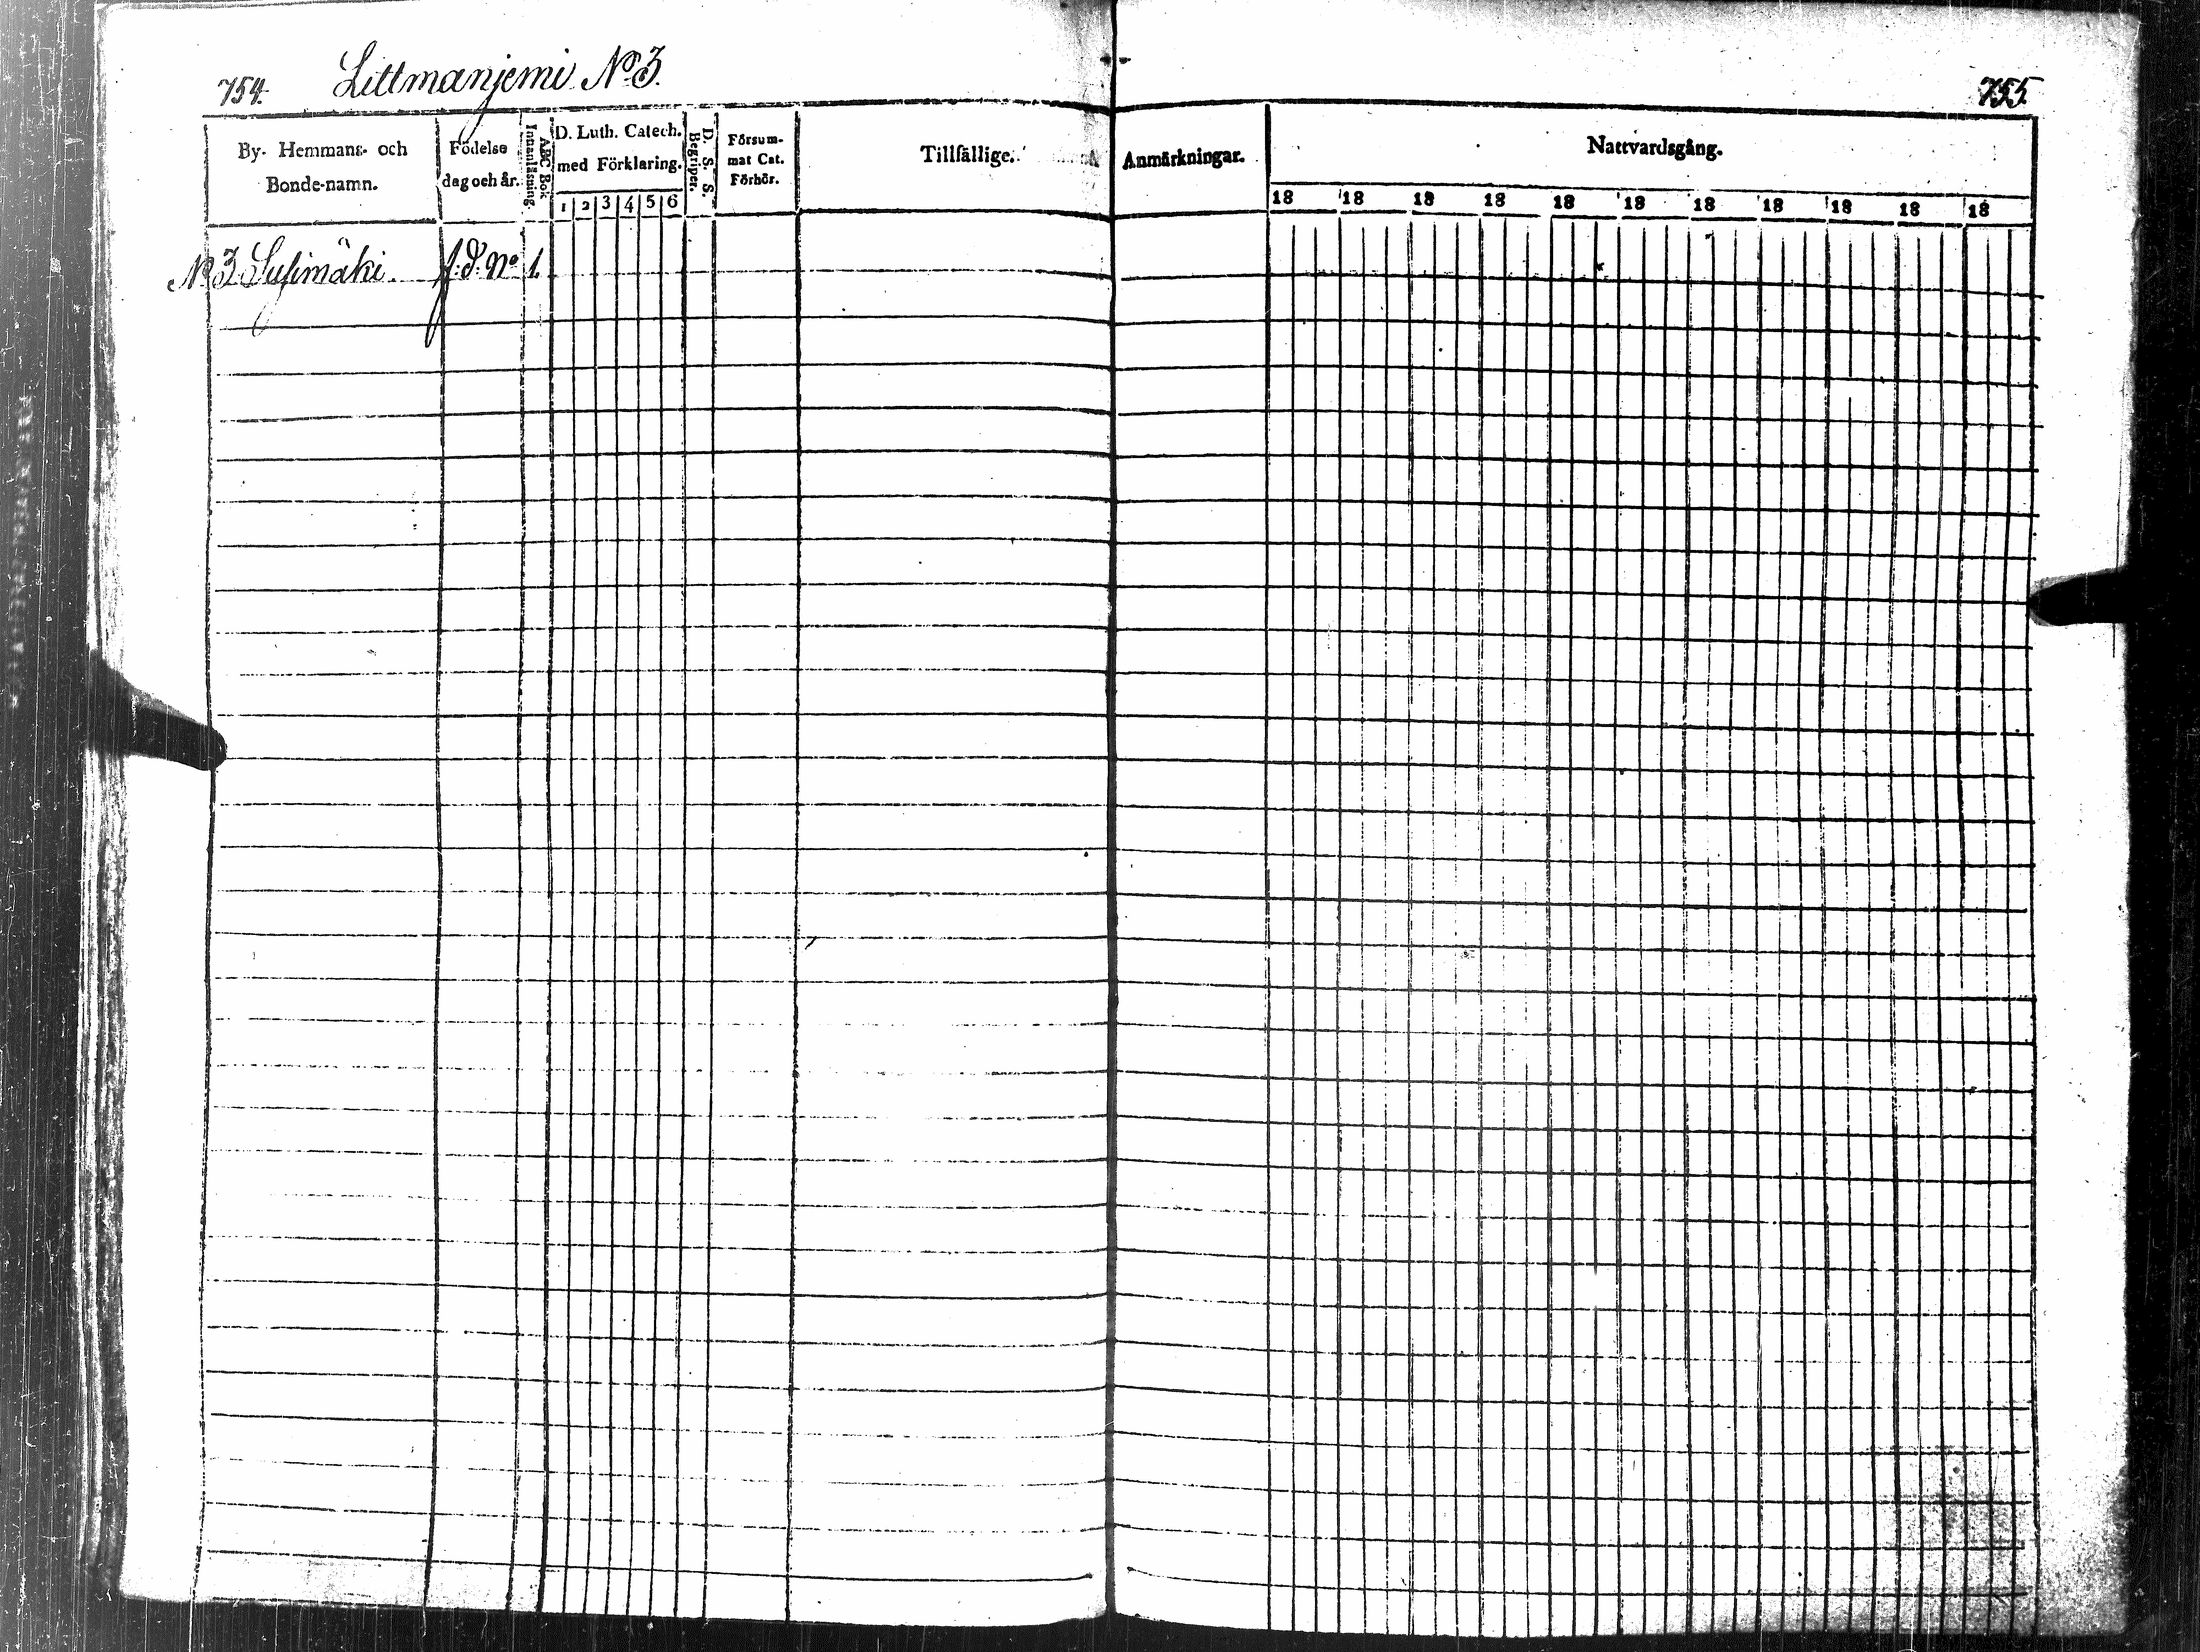 754. Littmanjemi No 3. 755.
By- Hemmans- och Bonde-namn.
Födelse dag och år.
ABC Bok Innantläsning.
D. Luth. Catech. med Förklaring.
1 2 3 4 5 6
D. S. S. Begriper.
Försum- mat Cat. Förhör.
Tillfällige. Anmärkningar.
Nattvardsgång.
18 18 18 18 18 18 18 18 18 18 18
No 3 Susimäki. f. d. No 1.